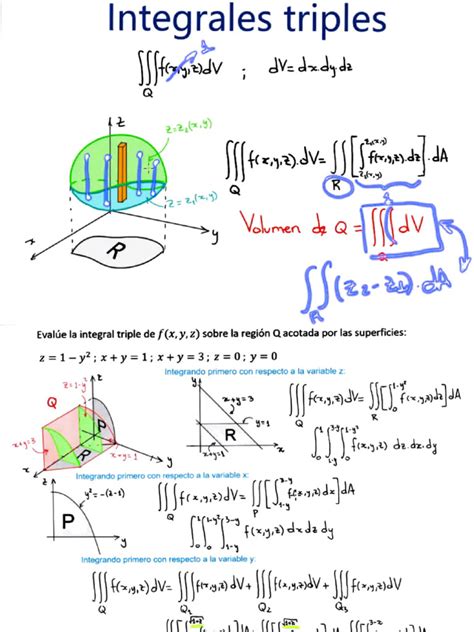 Integrales triples
∭f(x,y,z)dV ; dV=dx.dy.dz
Q
z
z=z₂(x,y)
z=z₁(x,y)
x
y
R
∭f(x,y,z).dV=∬[∫f(x,y,z).dz].dA
Q R z₁(x,y) z₂(x,y)
Volumen de Q = ∭dV
Q
∬(z₂-z₁).dA
R
Evalúe la integral triple de f(x,y,z) sobre la región Q acotada por las superficies:
z = 1 − y² ; x + y = 1 ; x + y = 3 ; z = 0 ; y = 0
Integrando primero con respecto a la variable z:
z
z=1-y²
Q
x+y=3
R
x+y=1
x
y
y
x+y=3
y=1
R
x+y=1
x
∭f(x,y,z)dV=∬[∫₀^{1-y²}f(x,y,z)dz]dA
Q R
∫₀¹∫_{1-y}^{3-y}∫₀^{1-y²}f(x,y,z) dz.dx.dy
Integrando primero con respecto a la variable x:
z
y²=-(z-1)
P
y
∭f(x,y,z)dV=∬[∫_{1-y}^{3-y}f(x,y,z)dx]dA
Q P
∫₀¹∫₀^{1-y²}∫_{1-y}^{3-y}f(x,y,z)dx dz dy
Integrando primero con respecto a la variable y:
∭f(x,y,z)dV=∭f(x,y,z)dV+∭f(x,y,z)dV+∭f(x,y,z)dV
Q Q₁ Q₂ Q₃